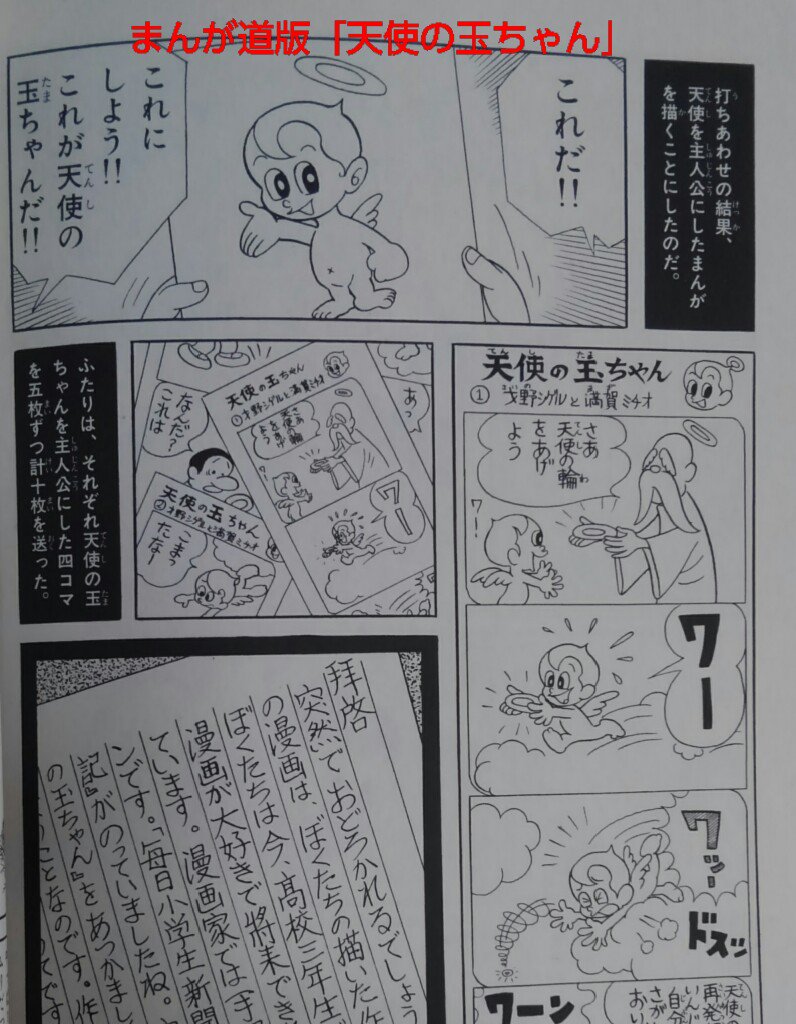 まんが道版「天使の玉ちゃん」
打ちあわせの結果、
天使を主人公にしたまんが
を描くことにしたのだ。
これだ!!
これに
しよう!!
これが天使の
玉ちゃんだ!!
天使の玉ちゃん
①才野シゲルと満賀ミチオ
さあ
天使の輪
をあげ
よう
ワー
ワッー
ドスッ
ワーン
天使
再発
自分
さが
おい
あっ
なんだ?
これは
天使の玉ちゃん
①才野シゲルと満賀ミチオ
さあ
天使の輪
をあげ
よう
ワー
天使の玉ちゃん
②才野シゲルと満賀ミチオ
こまっ
たなー
ふたりは、それぞれ天使の玉
ちゃんを主人公にした四コマ
を五枚ずつ計十枚を送った。
拝啓
突然でおどろかれるでしょう
の漫画は、ぼくたちの描いた作
ぼくたちは今、高校三年生
漫画が大好きで将来でき
ています。漫画家では「手
ンです。「毎日小学生新聞
記』がのっていましたね。
の玉ちゃん』をあつかまし
ことなのです。作